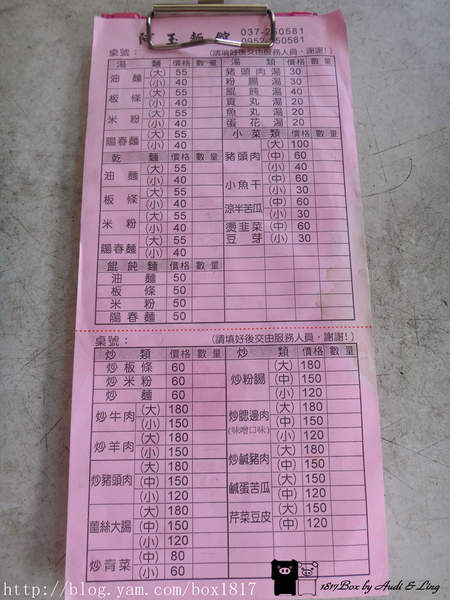 037-250581
0952-250581
桌號: (請填好後交由服務人員,謝謝!)
湯 麵 價格 數量 湯 類 價格 數量
油麵 (大) 55 豬頭肉湯 30
(小) 40 粉腸湯 30
板條 (大) 55 餛飩湯 40
(小) 40 貢丸湯 20
米粉 (大) 55 魚丸湯 20
(小) 40 蛋花湯 20
陽春麵 (大) 55 小菜類 價格 數量
(小) 40 豬頭肉 (大) 100
乾 麵 價格 數量 (中) 60
油麵 (大) 55 (小) 40
(小) 40 小魚干 (中) 60
板條 (大) 55 (小) 40
(小) 40 涼半苦瓜 (中) 60
米粉 (大) 55 (小) 30
(小) 40 燙韭菜 (中) 60
陽春麵 (大) 55 豆芽 (小) 30
(小) 40
餛飩麵 價格 數量
油麵 50
板條 50
米粉 50
陽春麵 50
桌號: (請填好後交由服務人員,謝謝!)
炒 類 價格 數量 炒 類 價格 數量
炒板條 60 炒粉腸 (大) 180
炒米粉 60 (中) 150
炒麵 60 (小) 120
炒牛肉 (大) 180 炒腮邊肉 (大) 180
(小) 150 (味噌口味) (中) 150
炒羊肉 (大) 180 (小) 120
(小) 150 炒鹹豬肉 (大) 180
炒豬頭肉 (大) 180 (中) 150
(中) 150 鹹蛋苦瓜 (大) 150
(小) 120 (中) 120
薑絲大腸 (大) 180 芹菜豆皮 (大) 150
(中) 150 (中) 120
(小) 120
炒青菜 (中) 80
(小) 60
http://blog.yam.com/box1817
1817Box by Audi & Ling